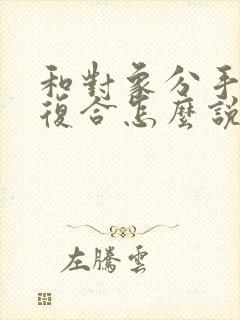 和對象分手
復合怎麼說
左騰雲